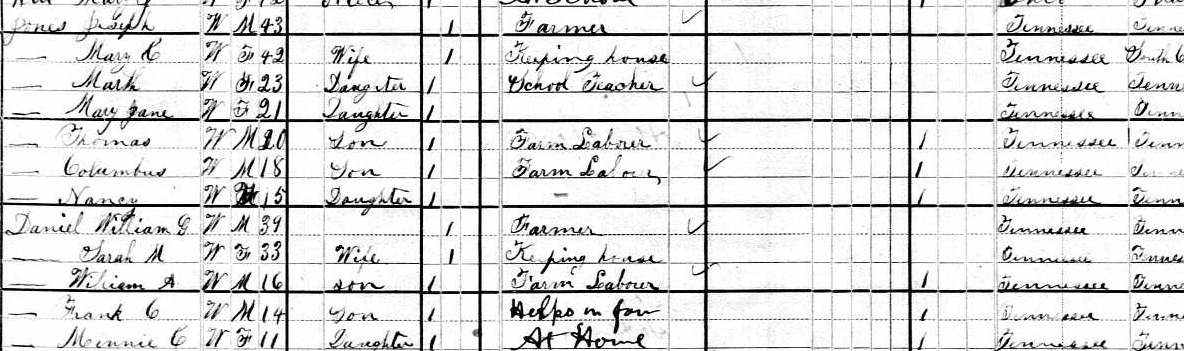 Mary
Jones Joseph W M 43 1 Farmer Tennessee Tenne
— Mary C W F 42 Wife 1 Keeping house Tennessee South C
— Marth W F 23 Daughter 1 School Teacher Tennessee Tenn
— Mary Jane W F 21 Daughter 1 Tennessee Tenn
— Thomas W M 20 Son 1 Farm Labourer 1 Tennessee Tenn
— Columbus W M 18 Son 1 Farm Labour 1 Tennessee Tenne
— Nancy W F 15 Daughter 1 — 1 Tennessee Tenn
Daniel William G W M 39 1 Farmer Tennessee Tenn
— Sarah M W F 33 Wife 1 Keeping house Tennessee Tennes
— William A W M 16 Son 1 Farm Labourer 1 Tennessee Tenne
— Frank C W M 14 Son 1 Helps on far 1 Tennessee Tenn
— Minnie C W F 11 Daughter 1 At Home 1 Tennessee Tenn